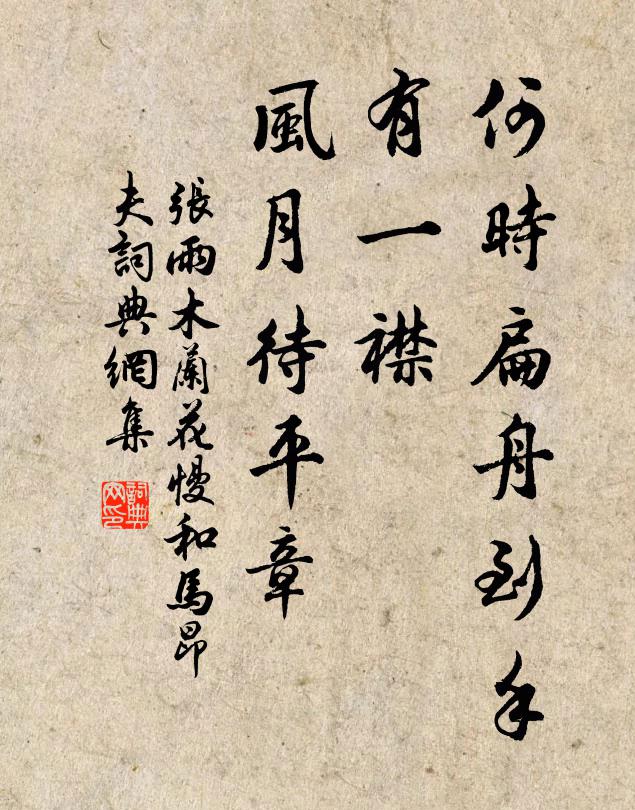 何時扁舟到手
有一襟
風月待平章
張雨木蘭花慢和馬昂
夫詞典網集
詞典
网印